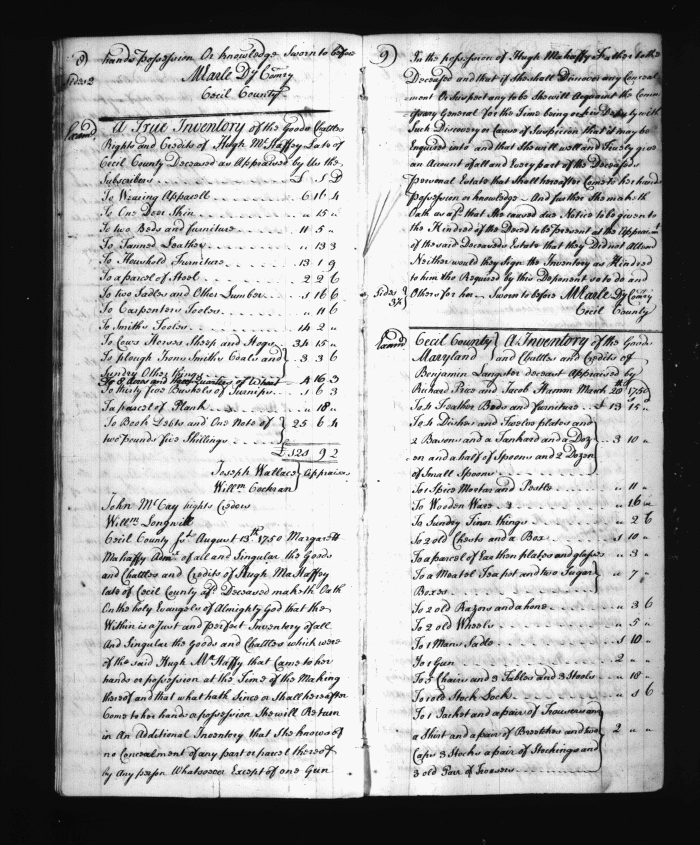 8)
hands possession Or knowledge Sworn to before
Sides 2
M Earle Dy Comry
Cecil County
Exam'd
A True Inventory of the Goods Chattles
Rights and Credits of Hugh McHaffey Late of
Cecil County Deceased as Appraised by Us the
Subscribers £ S D
To Wearing Apparell 6 16 4
To One Deer Skin " 15 "
To two Beds and furniture 11 5 "
To Tanned Leather " 13 3
To Houshold Furniture 13 1 9
To a parcel of Steel 2 2 6
To two Sadles and Other Lumber 1 16 6
To Carpenters Tooles " 11 6
To Smiths Tooles 14 2 "
To Cows Horses Sheep and Hogs 34 15 "
To plough Irons Smiths Coals and
Sundry Other things 3 3 6
To 8 Acres and three quarters of Wheat 4 16 3
To thirty five Bushels of Turnips 1 6 3
To a parcel of Plank " 18 "
To Book Debts and One Note of
two pounds five Shillings 25 6 4
£ 121 9 2
Joseph Wallace
Willm Cockran
Appraisers
John McCay
Willm Longwill
Cecil County Ss August 13th 1750 Margarett
Mahaffey Admx of all and Singular the Goods
and Chattles and Credits of Hugh Mahaffey
late of Cecil County afd Deceased maketh Oath
On the holy Evangels of Almighty God that the
Within is a Just and perfect Inventory of all
And Singular the Goods and Chattles which were
of the said Hugh McHaffy that Came to her
hands or possession at the Time of the Making
thereof and that what hath Since or Shall hereafter
Come to her hands or possession She will Return
in An Additional Inventory that She knows of
no Concealment of any part or parcel thereof
by Any person Whatsoever Except of one Gun
9)
In the possession of Hugh Mahaffy Father to the
Deceased and that if She shall Discover any Conceal-
ment Or Suspect any to be She will Acquaint the Comm
issary General for the Time being or his Deputy with
Such Discovery or Cause of Suspicion that it may be
Enquired into and that She will well and Truely give
an Account of all and Every part of the Deceaseds
Personal Estate that Shall hereafter Come to her hands
Possession or knowledge And further She maketh
Oath as afd that She caused due Notice to be given to
the Kindred of the Deced to be present at the Appraismt
of the said Deceaseds Estate that they Did not Attend
Neither would they Sign the Inventory as Kindred
to him tho Required by this Deponent so to do and
Others for her Sworn to before M Earle Dy Comry
Cecil County
Sides
Exam'd
Cecil County
Maryland
A Inventory of the Goods
and Chattles and Credits of
Benjamin Langster deceast Appraised by
Richard Price and Jacob Hamm March 20th 1750
To 4 Feather Beds and furniture £ 13 15 "
To 4 Dishes and Twelve plates and
2 Basons and a Tankard and a Doz
en and a half of Spoons and 2 Dozen
of Small Spoons 3 10 "
To 1 Spice Mortar and Pestle " 11 "
To Wooden Ware " 16 "
To Sundry Tinn things " 2 6
To 2 old Chests and a Box 1 10 "
To a parcel of Earthen plates and glasses " 3 "
To a Meatel Teapot and two Sugar
Boxes " 7 "
To 2 old Razors and a hone " 3 6
To 2 old Wheels " 5 "
To 1 Mans Sadle 1 10 "
To 1 Gun 2 " "
To 5 Chairs and 3 Tables and 3 Stools " 18 "
To 1 old Stock Lock " 1 6
To 1 Jacket and a pair of Trousers and
a Shirt and a pair of Breetches and two
Caps 3 Stocks a pair of Stockings and
3 old Pair of Trousers 2 " "